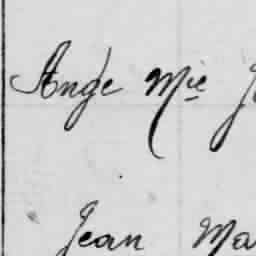 Ange Mie J
Jean Ma